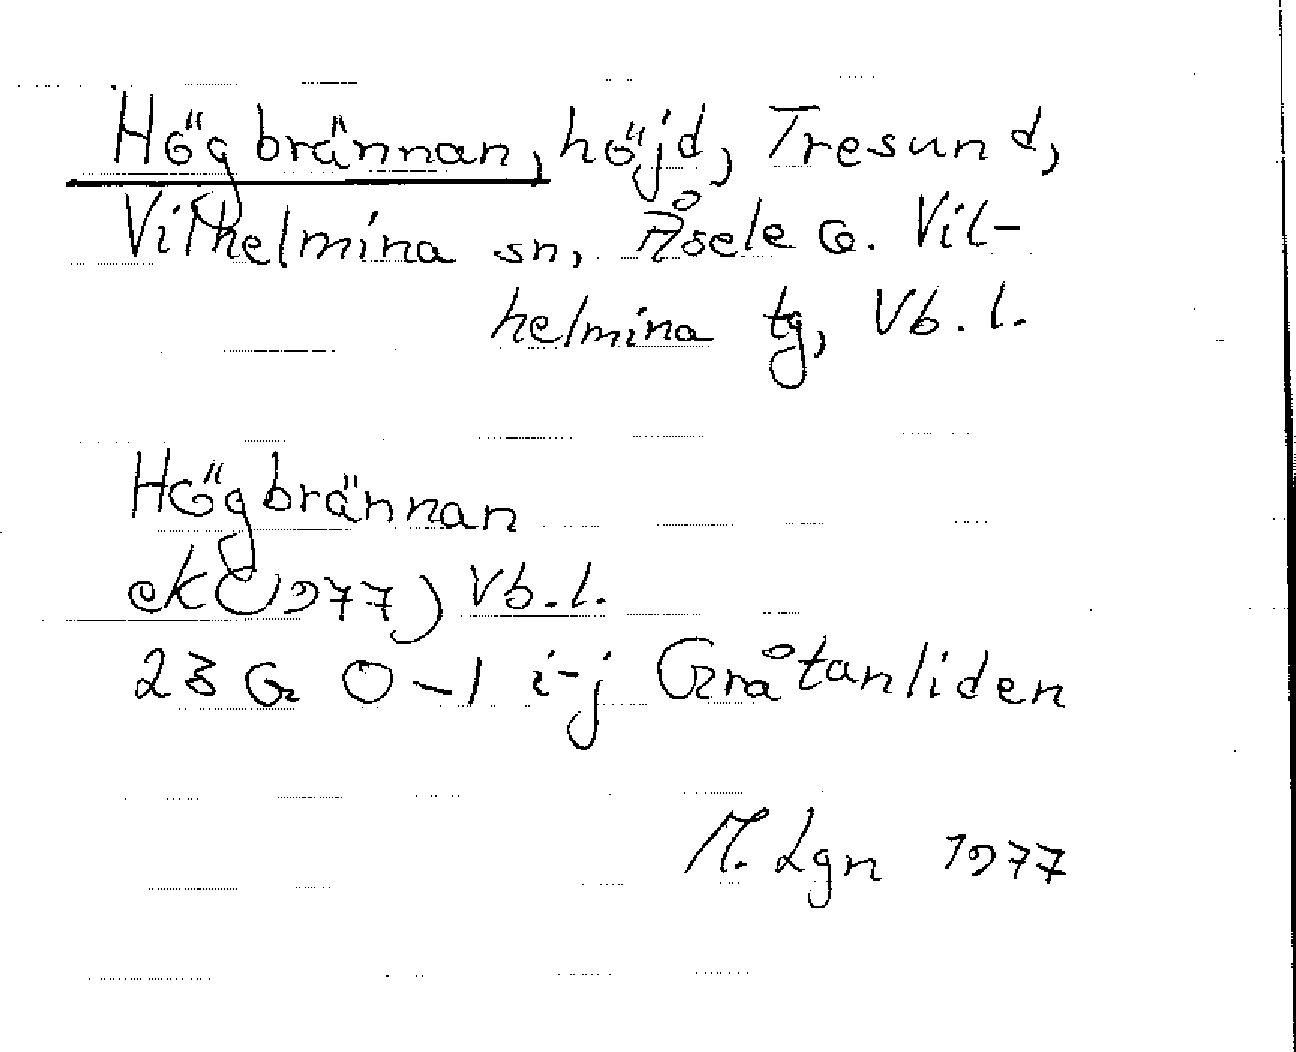 Högbrännan, höjd, Tresund,
Vilhelmina sn, Åsele o. Vil-
helmina tg, Vb. l.
Högbrännan
eK (1977) Vb. l.
23 G 0-1 i-j Gråtanliden
A. Lgn 1977